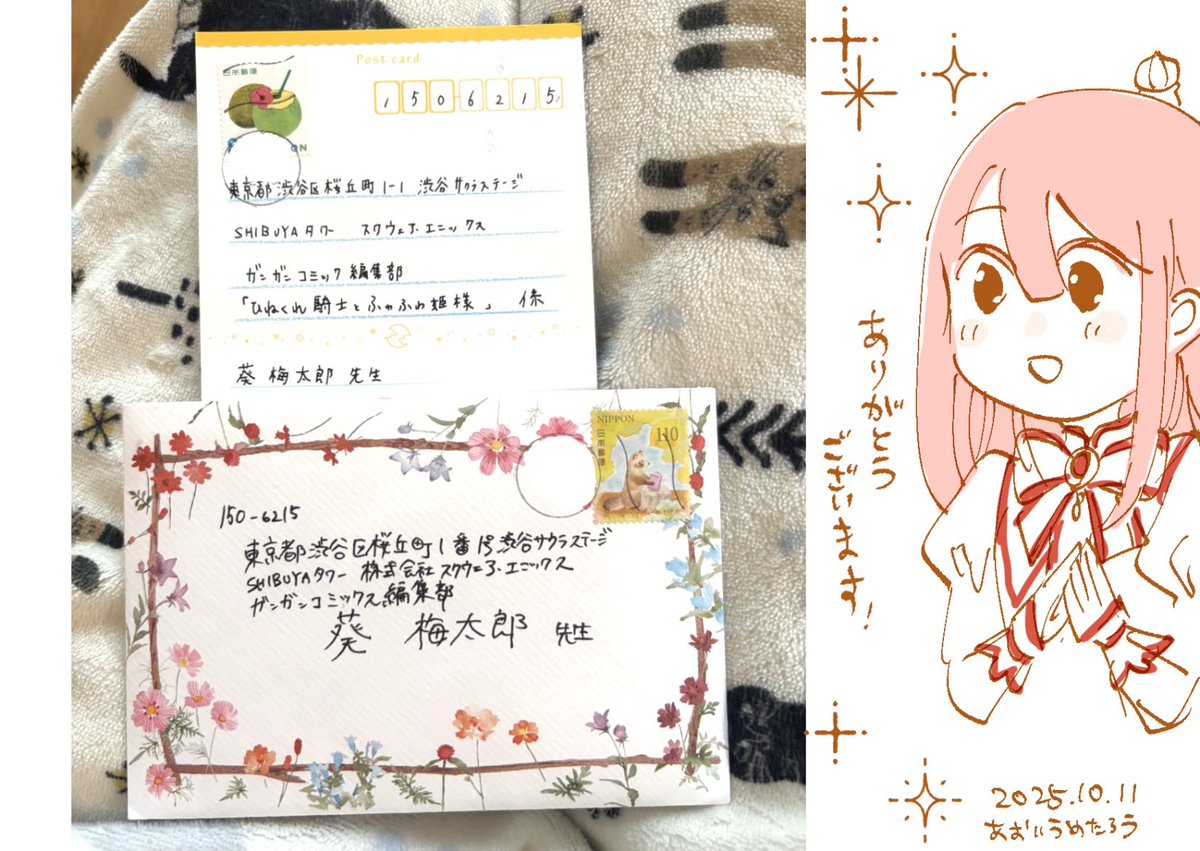 Post card
日本郵便
1506215
東京都渋谷区桜丘町1-1 渋谷サクラステージ
SHIBUYAタワー スクウェア・エニックス
ガンガンコミック編集部
「ひねくれ騎士とふわふわ姫様」係
葵 梅太郎 先生
NIPPON
日本郵便
110
150-6215
東京都渋谷区桜丘町1番1号渋谷サクラステージ
SHIBUYAタワー 株式会社スクウェア・エニックス
ガンガンコミックス編集部
葵 梅太郎 先生
ありがとう
ございます!
2025.10.11
あおいうめたろう